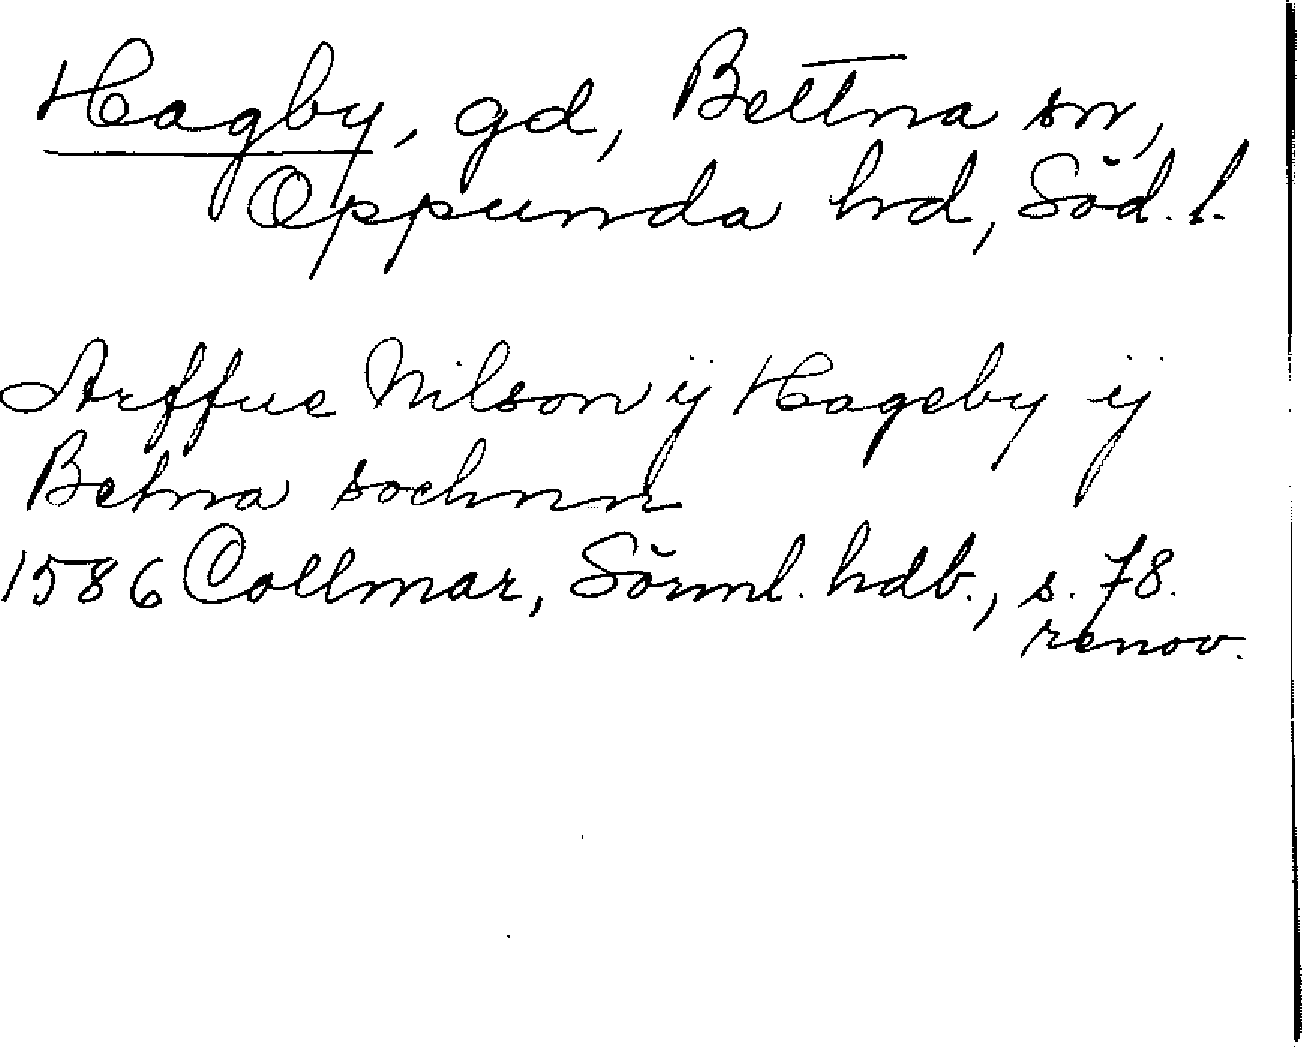 Hagby, gd, Bettna sn,
Oppunda hd, Söd. l.
Arffue Nilson ij Hageby ij
Betna sochnn
1586 Collmar, Sörml. hdb., s. 78.
renov.